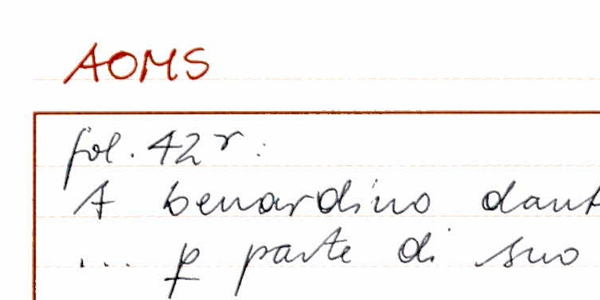 AOMS
fol. 42r:
A benardino dant
... p parte di suo